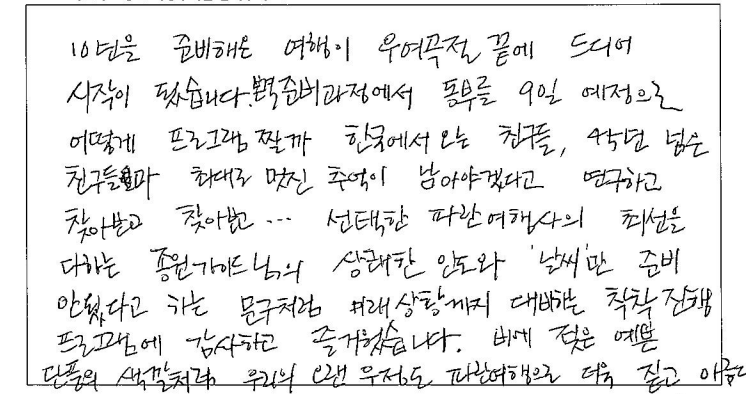 10년을 준비해온 여행이 우여곡절 끝에 드디어
시작이 됐습니다. 준비과정에서 동부를 9일 예정으로
어떻게 프로그램 짤까 한국에서 오는 친구들, 넘은
친구들과 최대로 멋진 추억이 남아야겠다고 연구하고
찾아보고 찾아보고 ... 선택한 파란여행사의 최선을
다하는 종원가이드님의 상쾌한 인도와 '날씨'만 준비
안됐다고 하는 문구처럼 미래상황까지 대비하는 착착 진행
프로그램에 감사하고 즐거웠습니다. 비에 젖은 예쁜
단풍의 색깔처럼 우리의 오랜 우정도 파란여행으로 더욱 짙고